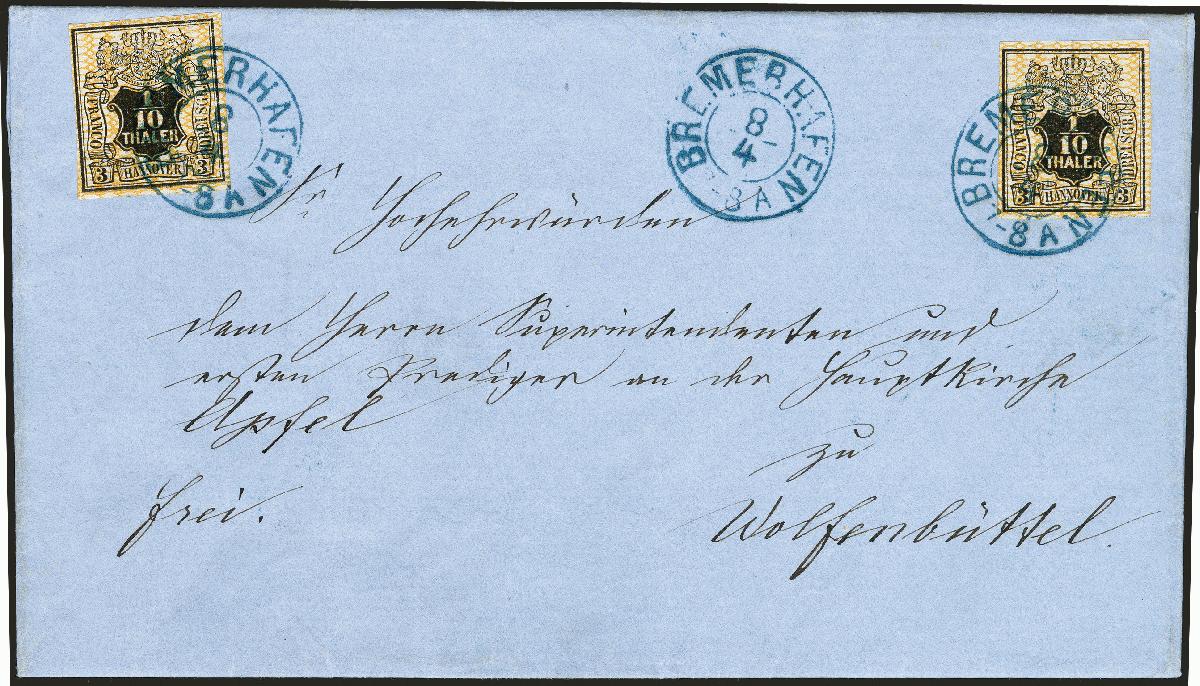 1/10
THALER
FRANCO
DREI SGR.
3 HANNOVER 3
MERHAFEN
8
-8 A
BREMERHAFEN
8
4
-8 A
1/10
THALER
FRANCO
DREI SGR.
3 HANNOVER 3
BREM
N
-8 A
Sr Hochehrwürden
dem Herrn Superintendenten und
ersten Prediger an der Hauptkirche
Apfel
zu
frei.
Wolfenbüttel.